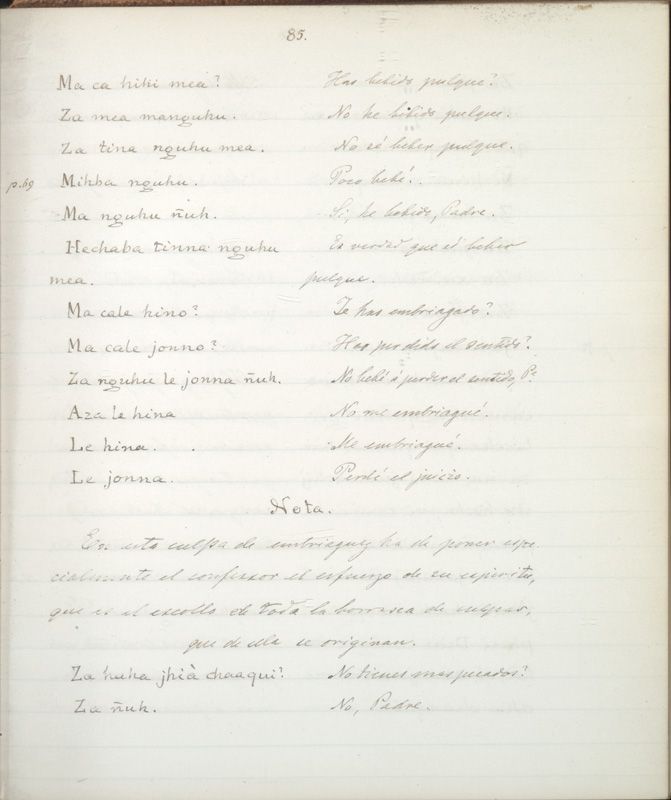 85.
Ma ca hihi mea? Has bebido pulque?
Za mea manguhu. No he bebido pulque.
Za tina nguhu mea. No sé beber pulque.
p. 69 Mihba nguhu. Poco bebí.
Ma nguhu ñuh. Si, he bebido, Padre.
Hechaba tinna nguhu Es verdad que sé beber
mea. pulque.
Ma cale hino? Te has embriagado?
Ma cale jonno? Has perdido el sentido?
Za nguhu le jonna ñuh. No bebí á perder el sentido, Pe.
Aza le hina No me embriagué.
Le hina. Me embriagué.
Le jonna. Perdí el juicio.
Nota.
En esta culpa de embriaguez ha de poner espe
cialmente el confessor el esfuerzo de su espiritu,
que es el escollo de toda la borrasca de culpas,
que de ella se originan.
Za huha jhià chaaqui? No tienes mas pecados?
Za ñuh. No, Padre.